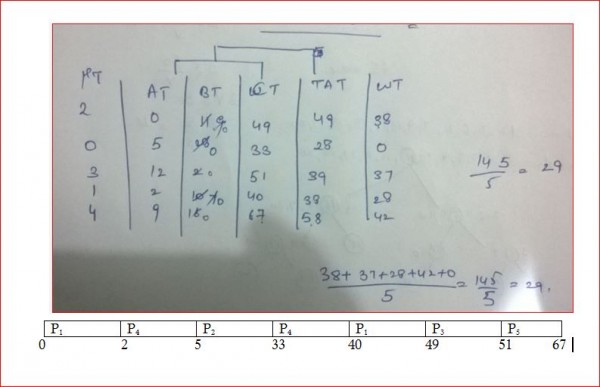 AT BT CT TAT WT
2 0 49 49 38
0 5 0 33 28 0
3 12 51 39 37
1 2 40 38 28
4 9 67 58 42
145/5 = 29
38+37+28+42+0/5 = 145/5 = 29.
P1 P4 P2 P4 P1 P3 P5
0 2 5 33 40 49 51 67